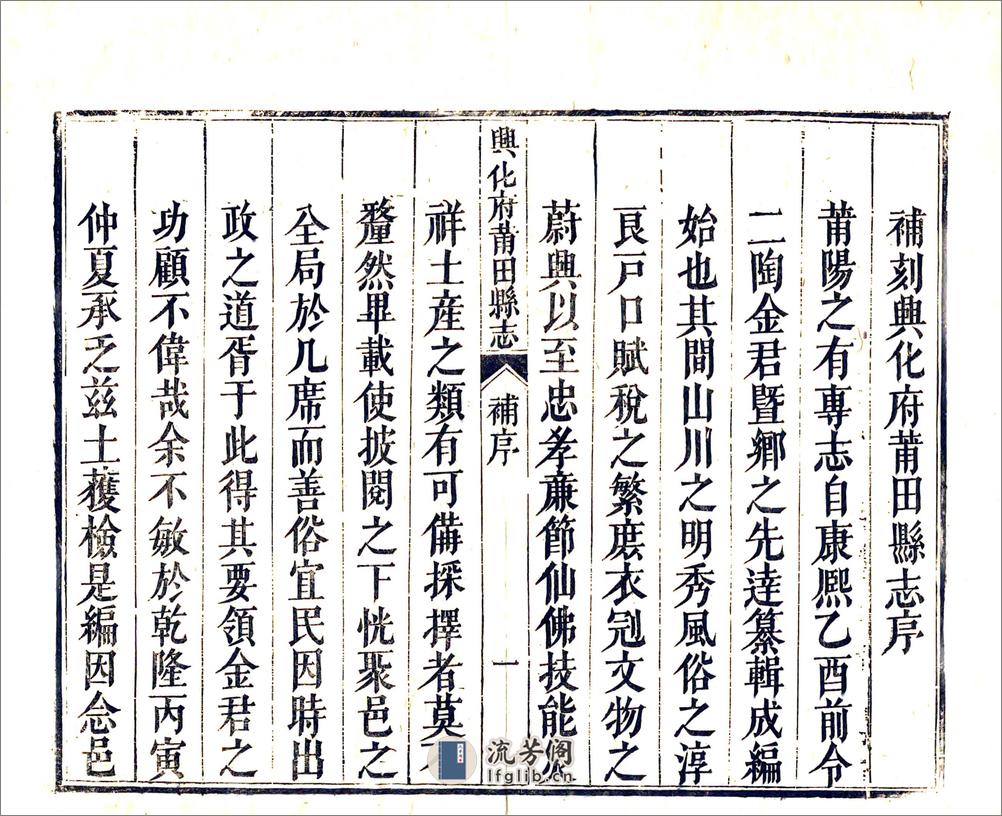 補刻興化府莆田縣志序
莆陽之有專志自康熈乙酉前令
二陶金君暨鄉之先達纂輯成編
始也其間山川之明秀風俗之淳
良戸口賦稅之繁庶衣冠文物之
蔚興以至忠孝亷節仙佛技能
興化府莆田縣志
補序
一
祥土産之類有可備採擇者莫
釐然畢載使披閱之下恍聚邑之
全局於几席而善俗宜民因時出
政之道胥于此得其要領金君之
功顧不偉哉余不敏於乾隆丙寅
仲夏承乏兹土蒦檢是編因念邑
流芳阁
lfglib.cn